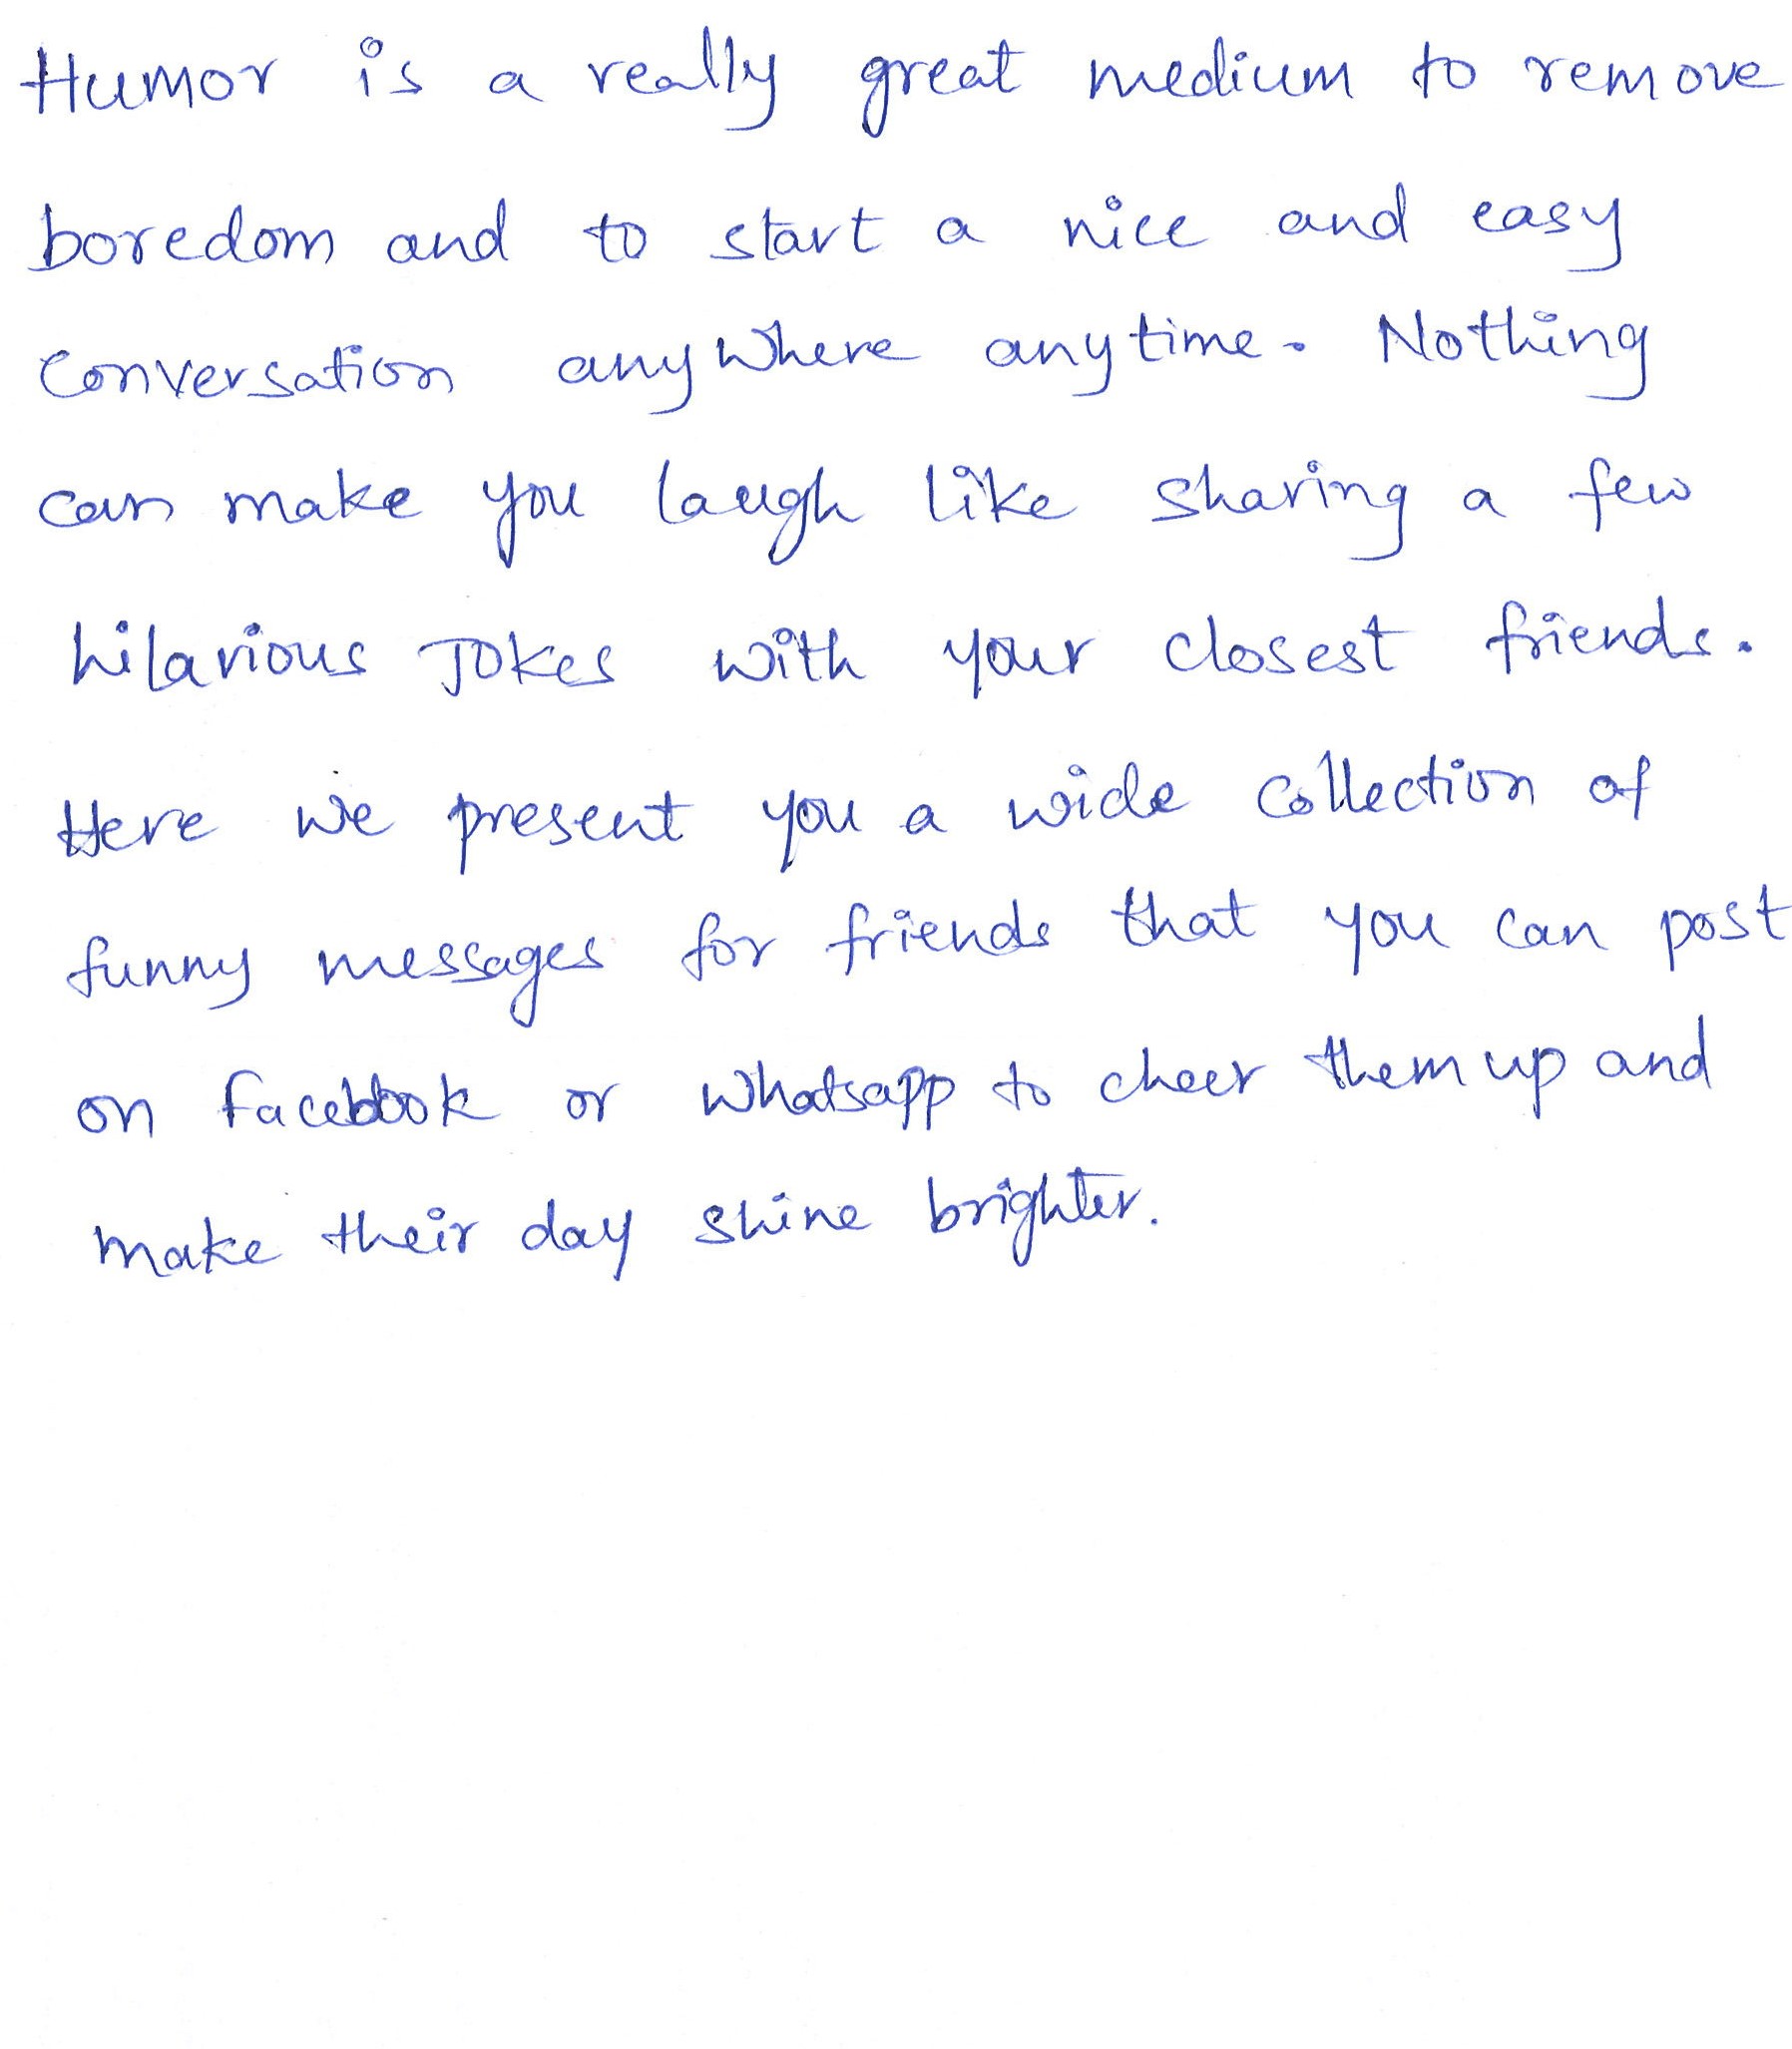 Humor is a really great medium to remove
boredom and to start a nice and easy
conversation anywhere anytime. Nothing
can make you laugh like sharing a few
hilarious Jokes with your closest friends.
Here we present you a wide collection of
funny messages for friends that you can post
on facebook or whatsapp to cheer them up and
make their day shine brighter.